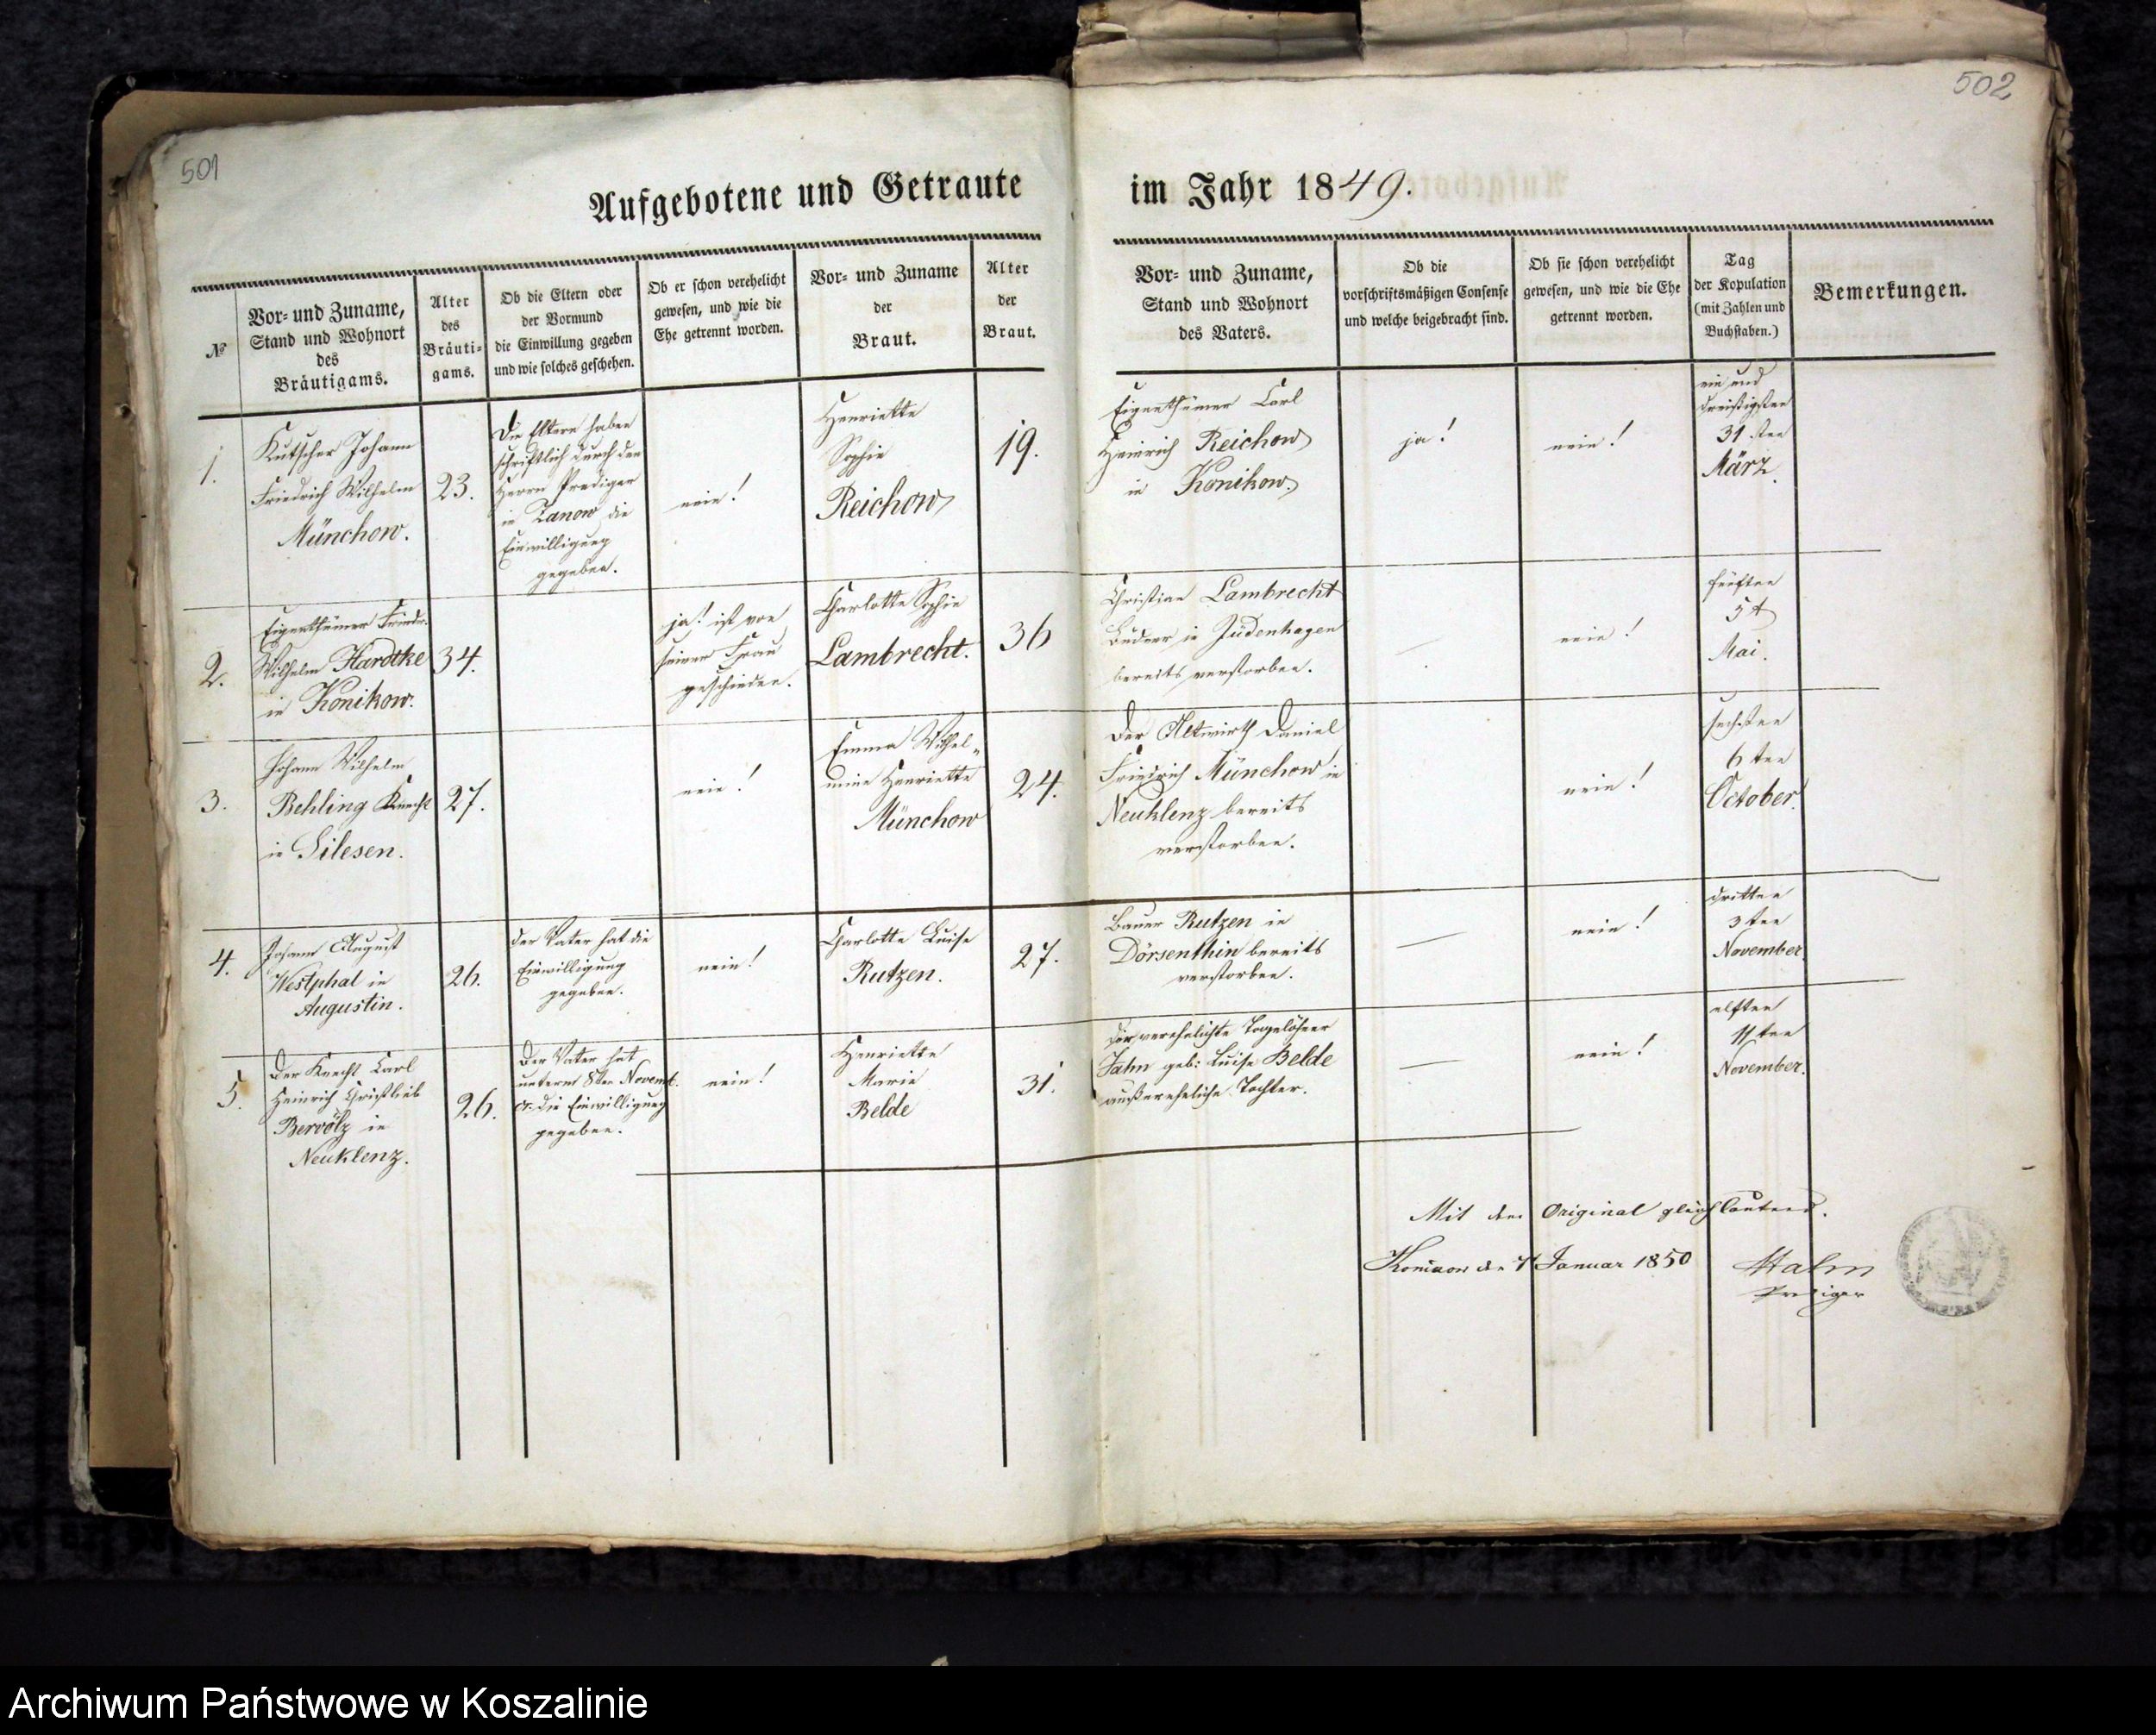 501
502
Aufgebotene und Getraute
im Jahr 1849.
№
Vor- und Zuname,
Stand und Wohnort
des
Bräutigams.
Alter
des
Bräuti-
gams.
Ob die Eltern oder
der Vormund
die Einwillung gegeben
und wie solches geschehen.
Ob er schon verehelicht
gewesen, und wie die
Ehe getrennt worden.
Vor- und Zuname
der
Braut.
Alter
der
Braut.
Vor- und Zuname,
Stand und Wohnort
des Vaters.
Ob die
vorschriftsmäßigen Consense
und welche beigebracht sind.
Ob sie schon verehelicht
gewesen, und wie die Ehe
getrennt worden.
Tag
der Kopulation
(mit Zahlen und
Buchstaben.)
Bemerkungen.
1.
Kutscher Johann
Friedrich Wilhelm
Münchow.
23.
Die Eltern haben
schriftlich durch den
Herrn Prediger
in Zanow die
Einwilligung
gegeben.
nein!
Henriette
Sophie
Reichow
19.
Eigenthümer Carl
Heinrich Reichow
in Konikow.
ja!
nein!
ein und
dreißigsten
31 sten
März.
2.
Eigenthümer Friedr.
Wilhelm Hardtke
in Konikow.
34.
ja! ist von
seiner Frau
geschieden.
Charlotte Sophie
Lambrecht.
36
Christian Lambrecht
Büdner in Jüdenhagen
bereits verstorben.
nein!
fünften
5 t
Mai.
3.
Johann Wilhelm
Behling Knecht
in Silesen.
27.
nein!
Emma Wilhel-
mine Henriette
Münchow
24.
Der Altwirth Daniel
Friedrich Münchow in
Neuklenz bereits
verstorben.
nein!
sechsten
6 ten
October.
4.
Johann August
Westphal in
Augustin.
26.
Der Vater hat die
Einwilligung
gegeben.
nein!
Charlotte Luise
Rutzen.
27.
Bauer Rutzen in
Dörsenthin bereits
verstorben.
nein!
dritten
3 ten
November.
5.
Der Knecht Carl
Heinrich Christlieb
Bervölz in
Neuklenz.
26.
Der Vater hat
unterm 8ten Novemb.
cr. die Einwilligung
gegeben.
nein!
Henriette
Marie
Belde
31.
Der verehelichte Tagelöhner
Jahn geb: Luise Belde
außereheliche Tochter.
nein!
elften
11 ten
November.
Mit dem Original gleichlautend.
Konikow den Januar 1850
Prediger
Archiwum Państwowe w Koszalinie